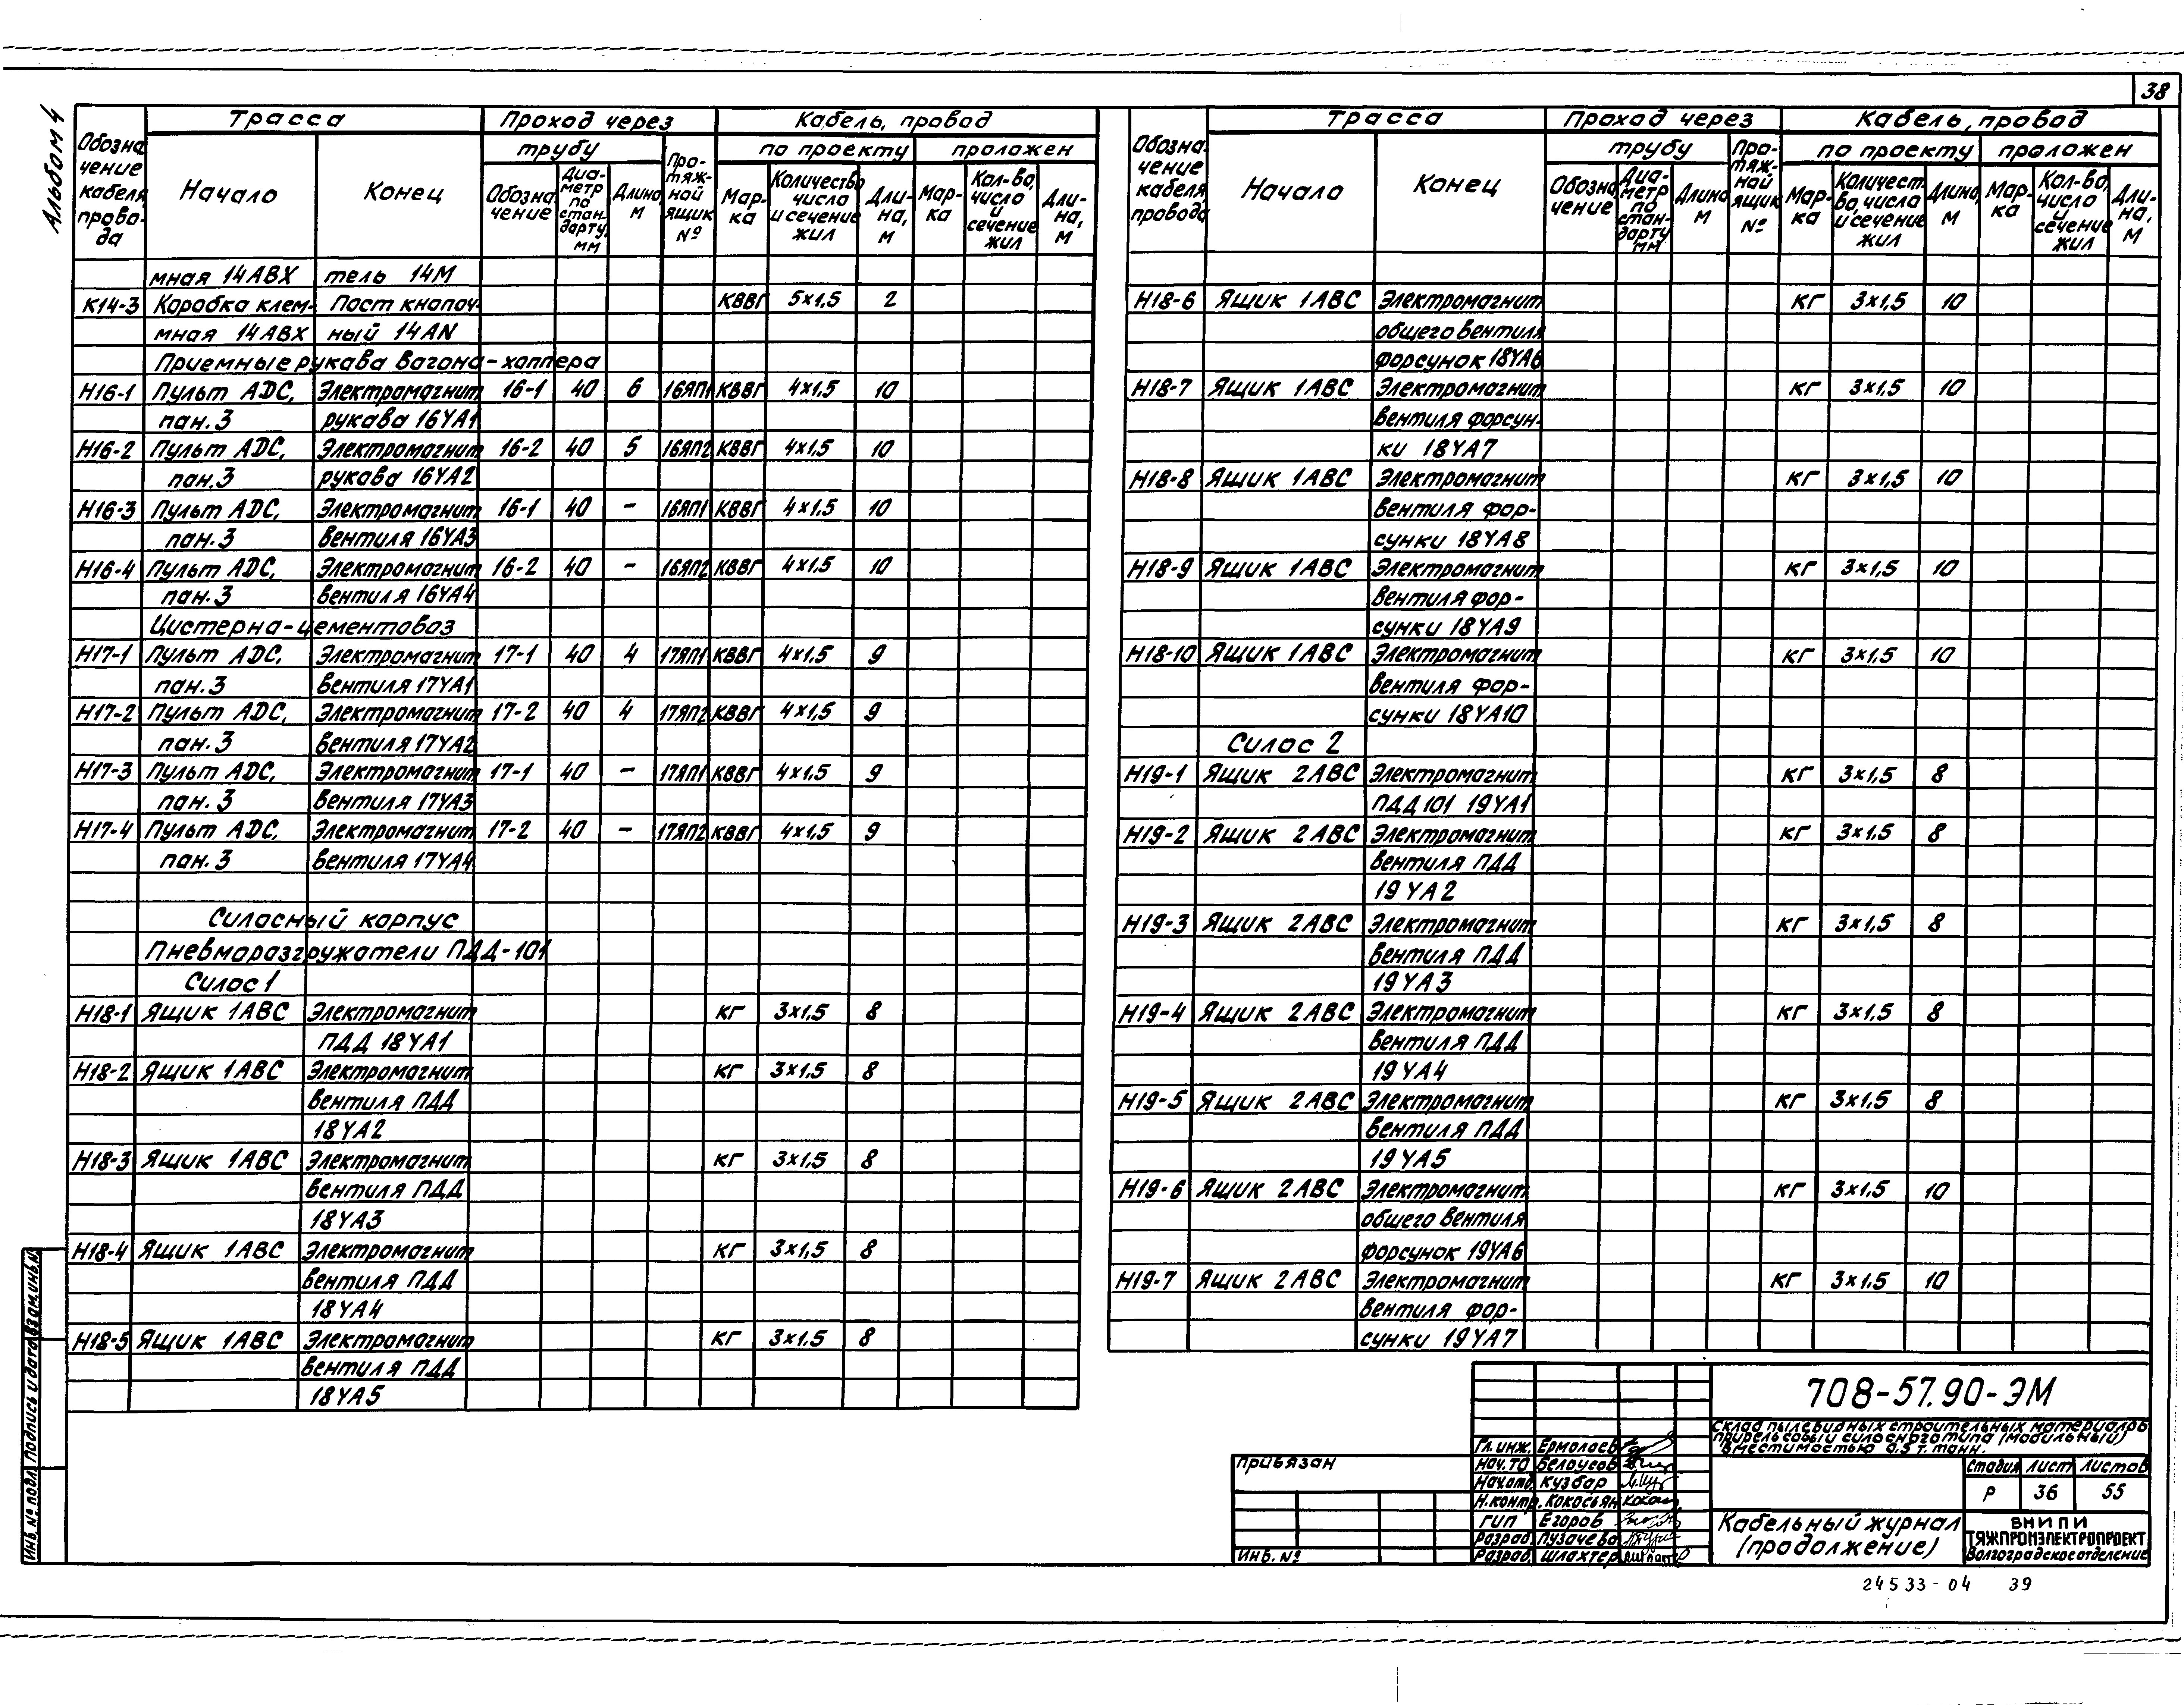 38
Альбом 4
Обозначение кабеля, провода | Трасса | Проход через | Кабель, провод
Начало | Конец | трубу | Протяжной ящик № | по проекту | проложен
Обозначение | Диаметр по стандарту, мм | Длина, м | Марка | Количество число и сечение жил | Длина, м | Марка | Кол-во, число и сечение жил | Длина, м
мная 14АВХ | тель 14М
К14-3 | Коробка клем- | Пост кнопоч- | КВВГ | 5х1,5 | 2
мная 14АВХ | ный 14AN
Приемные рукава вагона-хоппера
Н16-1 | Пульт ADC, | Электромагнит | 16-1 | 40 | 6 | 16ЯП1 | КВВГ | 4х1,5 | 10
пан. 3 | рукава 16YA1
Н16-2 | Пульт ADC, | Электромагнит | 16-2 | 40 | 5 | 16ЯП2 | КВВГ | 4х1,5 | 10
пан. 3 | рукава 16YA2
Н16-3 | Пульт ADC, | Электромагнит | 16-1 | 40 | – | 16ЯП1 | КВВГ | 4х1,5 | 10
пан. 3 | вентиля 16YA3
Н16-4 | Пульт ADC, | Электромагнит | 16-2 | 40 | – | 16ЯП2 | КВВГ | 4х1,5 | 10
пан. 3 | вентиля 16YA4
Цистерна-цементовоз
Н17-1 | Пульт ADC, | Электромагнит | 17-1 | 40 | 4 | 17ЯП1 | КВВГ | 4х1,5 | 9
пан. 3 | вентиля 17YA1
Н17-2 | Пульт ADC, | Электромагнит | 17-2 | 40 | 4 | 17ЯП2 | КВВГ | 4х1,5 | 9
пан. 3 | вентиля 17YA2
Н17-3 | Пульт ADC, | Электромагнит | 17-1 | 40 | – | 17ЯП1 | КВВГ | 4х1,5 | 9
пан. 3 | вентиля 17YA3
Н17-4 | Пульт ADC, | Электромагнит | 17-2 | 40 | – | 17ЯП2 | КВВГ | 4х1,5 | 9
пан. 3 | вентиля 17YA4
Силосный корпус
Пневморазгружатели ПДД-101
Силос 1
Н18-1 | Ящик 1АВС | Электромагнит | КГ | 3х1,5 | 8
ПДД 18YA1
Н18-2 | Ящик 1АВС | Электромагнит | КГ | 3х1,5 | 8
вентиля ПДД
18YA2
Н18-3 | Ящик 1АВС | Электромагнит | КГ | 3х1,5 | 8
вентиля ПДД
18YA3
Н18-4 | Ящик 1АВС | Электромагнит | КГ | 3х1,5 | 8
вентиля ПДД
18YA4
Н18-5 | Ящик 1АВС | Электромагнит | КГ | 3х1,5 | 8
вентиля ПДД
18YA5
Обозначение кабеля, провода | Трасса | Проход через | Кабель, провод
Начало | Конец | трубу | Протяжной ящик № | по проекту | проложен
Обозначение | Диаметр по стандарту, мм | Длина, м | Марка | Количество, число и сечение жил | Длина, м | Марка | Кол-во, число и сечение жил | Длина, м
Н18-6 | Ящик 1АВС | Электромагнит | КГ | 3х1,5 | 10
общего вентиля
форсунок 18YA6
Н18-7 | Ящик 1АВС | Электромагнит | КГ | 3х1,5 | 10
вентиля форсун-
ки 18YA7
Н18-8 | Ящик 1АВС | Электромагнит | КГ | 3х1,5 | 10
вентиля фор-
сунки 18YA8
Н18-9 | Ящик 1АВС | Электромагнит | КГ | 3х1,5 | 10
вентиля фор-
сунки 18YA9
Н18-10 | Ящик 1АВС | Электромагнит | КГ | 3х1,5 | 10
вентиля фор-
сунки 18YA10
Силос 2
Н19-1 | Ящик 2АВС | Электромагнит | КГ | 3х1,5 | 8
ПДД101 19YA1
Н19-2 | Ящик 2АВС | Электромагнит | КГ | 3х1,5 | 8
вентиля ПДД
19YA2
Н19-3 | Ящик 2АВС | Электромагнит | КГ | 3х1,5 | 8
вентиля ПДД
19YA3
Н19-4 | Ящик 2АВС | Электромагнит | КГ | 3х1,5 | 8
вентиля ПДД
19YA4
Н19-5 | Ящик 2АВС | Электромагнит | КГ | 3х1,5 | 8
вентиля ПДД
19YA5
Н19-6 | Ящик 2АВС | Электромагнит | КГ | 3х1,5 | 10
общего вентиля
форсунок 19YA6
Н19-7 | Ящик 2АВС | Электромагнит | КГ | 3х1,5 | 10
вентиля фор-
сунки 19YA7
Инв. № подл. | Подпись и дата | Взам. инв. №
Привязан
Инв. №
Гл. инж. | Ермолаев
Нач. ТО | Белоусов
Нач. отд. | Кузбар
Н. контр. | Кокосьян
ГИП | Егоров
Разраб. | Пузачева
Разраб. | Шлахтер
708-57.90-ЭМ
Склад пылевидных строительных материалов
прирельсовый силосного типа (модильный)
вместимостью 0.5 т. тонн.
Стадия | Лист | Листов
Р | 36 | 55
Кабельный журнал
(продолжение)
ВНИПИ
ТЯЖПРОМЭЛЕКТРОПРОЕКТ
Волгоградское отделение
24533-04 39